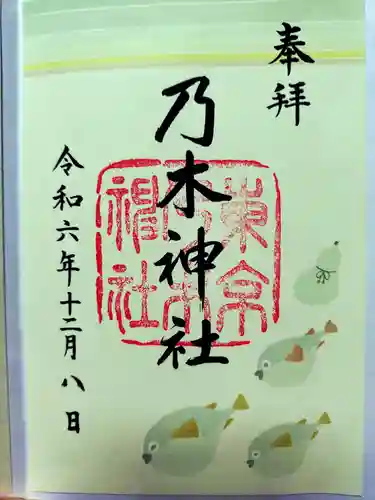 奉拝
乃木神社
東京乃木神社
令和六年十二月八日